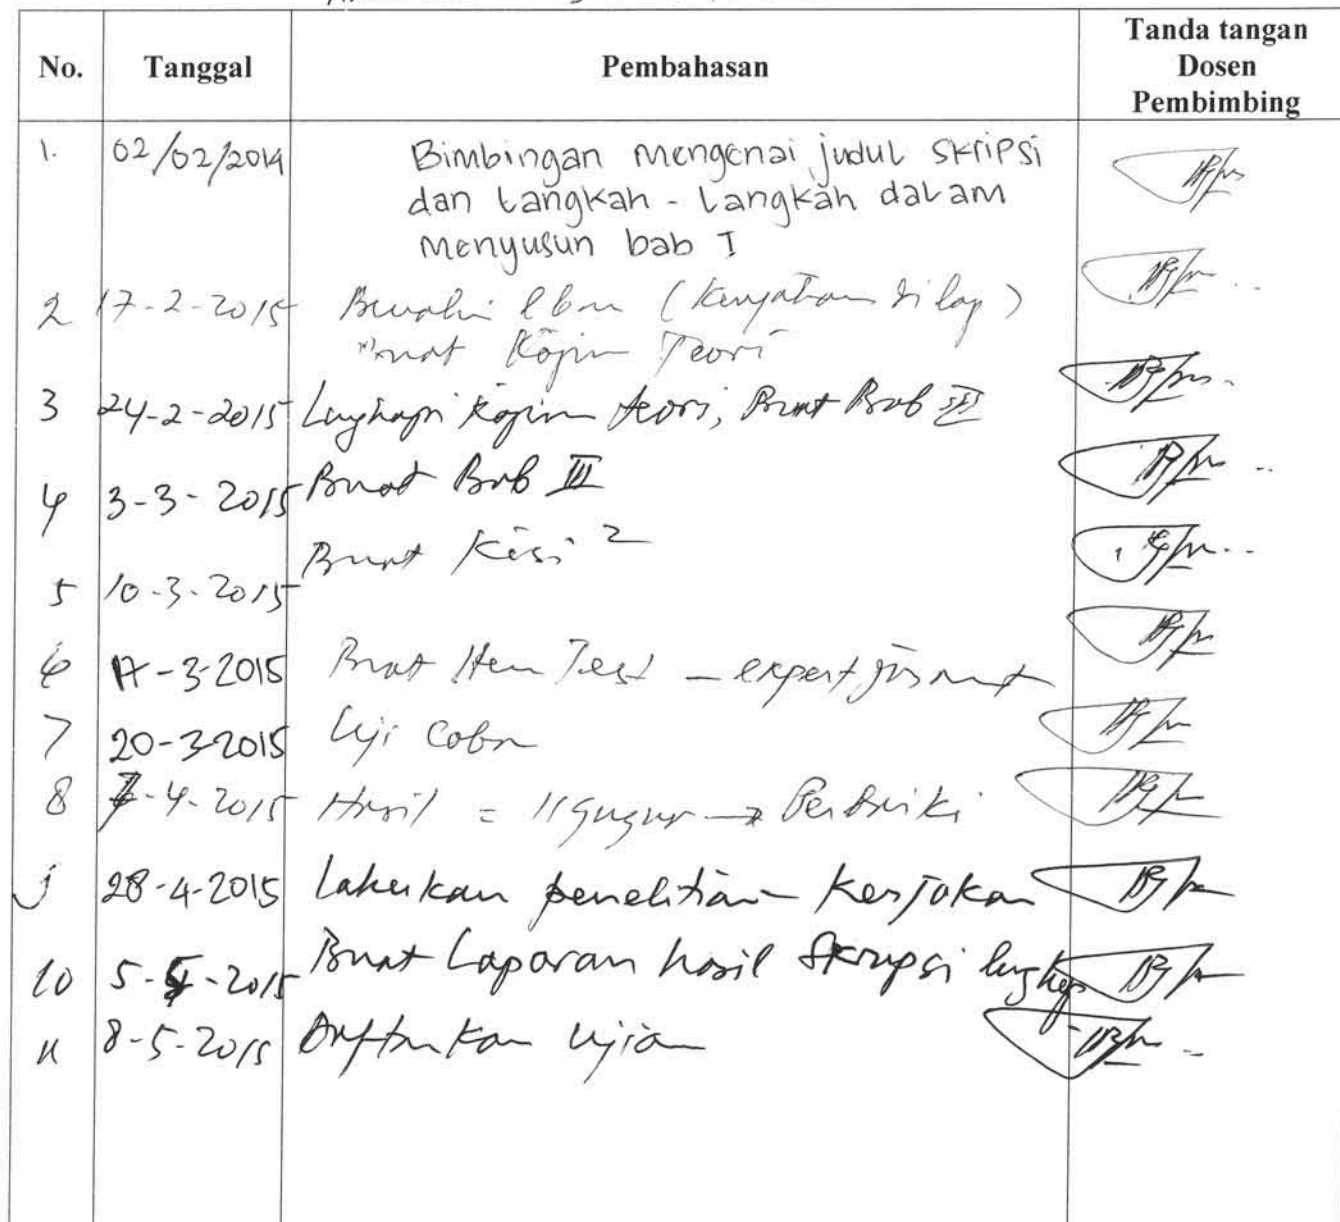 No. Tanggal Pembahasan Tanda tangan Dosen Pembimbing
1. 02/02/2014 Bimbingan mengenai judul skripsi
dan langkah - langkah dalam
menyusun bab I
2 17-2-2015 (Kenyataan di lap)
Buat Kajian Teori
3 24-2-2015 Lengkapi Kajian teori, Buat Bab III
4 3-3-2015 Buat Bab III
5 10-3-2015 Buat Kisi 2
6 17-3-2015 Buat Item Test - expert
7 20-3-2015 Uji Coba
8 7-4-2015 Hasil = 11 gugur → Perbaiki
9 28-4-2015 Lakukan penelitian - Kerjakan
10 5-5-2015 Buat Laporan hasil Skripsi lengkap
11 8-5-2015 Daftarkan Ujian